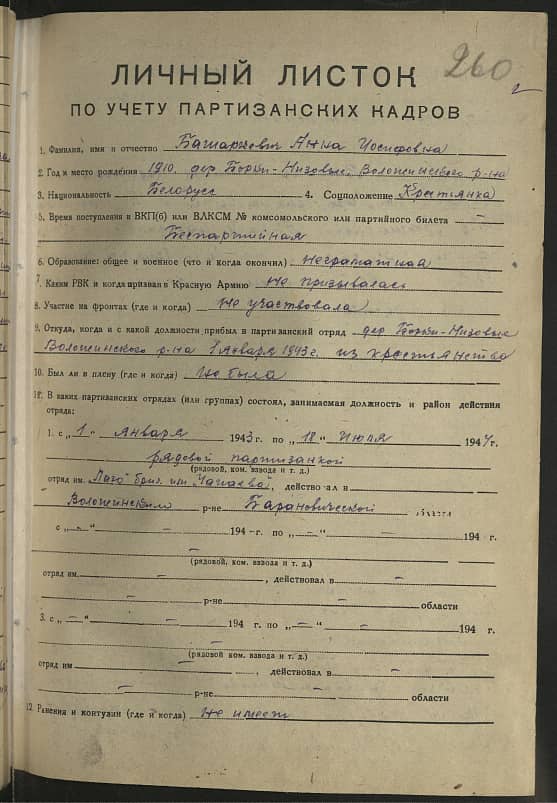 260
ЛИЧНЫЙ ЛИСТОК
ПО УЧЕТУ ПАРТИЗАНСКИХ КАДРОВ
1. Фамилия, имя и отчество Анна Иосифовна
2. Год и место рождения 1910. дер. Борки-Низовые, Воложинского р-на
3. Национальность Белорусс 4. Соцположение Крестьянка
5. Время поступления в ВКП(б) или ВЛКСМ № комсомольского или партийного билета —
Беспартийная
6. Образование: общее и военное (что и когда окончил) неграматная
7. Каким РВК и когда призван в Красную Армию не призывалась
8. Участие на фронтах (где и когда) Не участвовала
9. Откуда, когда и с какой должности прибыл в партизанский отряд дер Борки-Низовые
Воложинского р-на 1 Января 1943 г. из крестьянства
10. Был ли в плену (где и когда) Не была
11. В каких партизанских отрядах (или группах) состоял, занимаемая должность и район действия
отряда:
1. с „1" Января 1943 г. по „18" Июля 1944 г.
рядовой партизанкой
(рядовой, ком. взвода и т. д.)
отряд им. бриг. им Чапаева, действовал в
Воложинском р-не Барановической области
с „—" — 194 - г. по „—" — 194 г.
—
(рядовой, ком. взвода и т. д.)
отряд им. —, действовал в —
— р-не — области
3. с „—" — 194 г. по „—" — 194 г.
—
(рядовой, ком. взвода и т. д.)
отряд им —, действовал в —
— р-не — области
12. Ранения и контузии (где и когда) не имеет